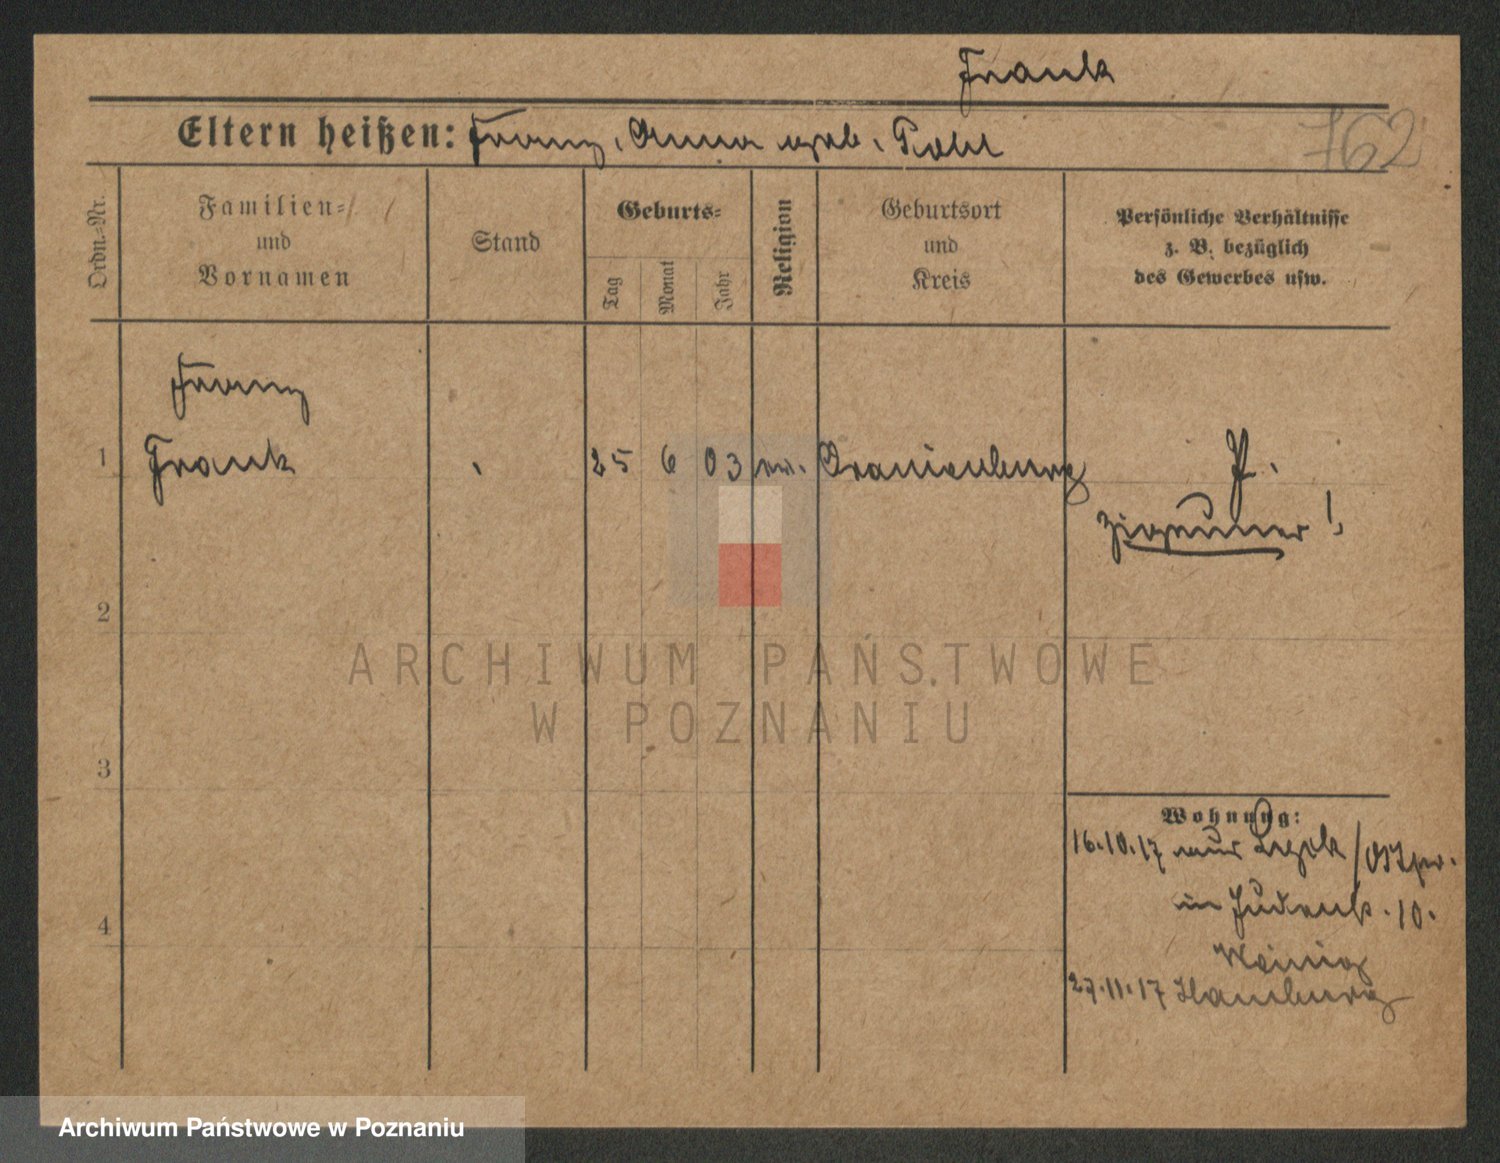 Frank
Eltern heißen: Franz, Anna geb. Pohl
762
Ordn.-Nr.
Familien-
und
Vornamen
Stand
Geburts-
Tag
Monat
Jahr
Religion
Geburtsort
und
Kreis
Persönliche Verhältnisse
z. B. bezüglich
des Gewerbes usw.
Franz
1 Frank 25 6 03 ev. Oranienburg Pf.
Zigeuner!
2
3
4
ARCHIWUM PAŃSTWOWE
W POZNANIU
Wohnung:
16.10.17 aus /Ostpr.
in Judenstr. 10.
27.11.17 Hamburg
Archiwum Państwowe w Poznaniu